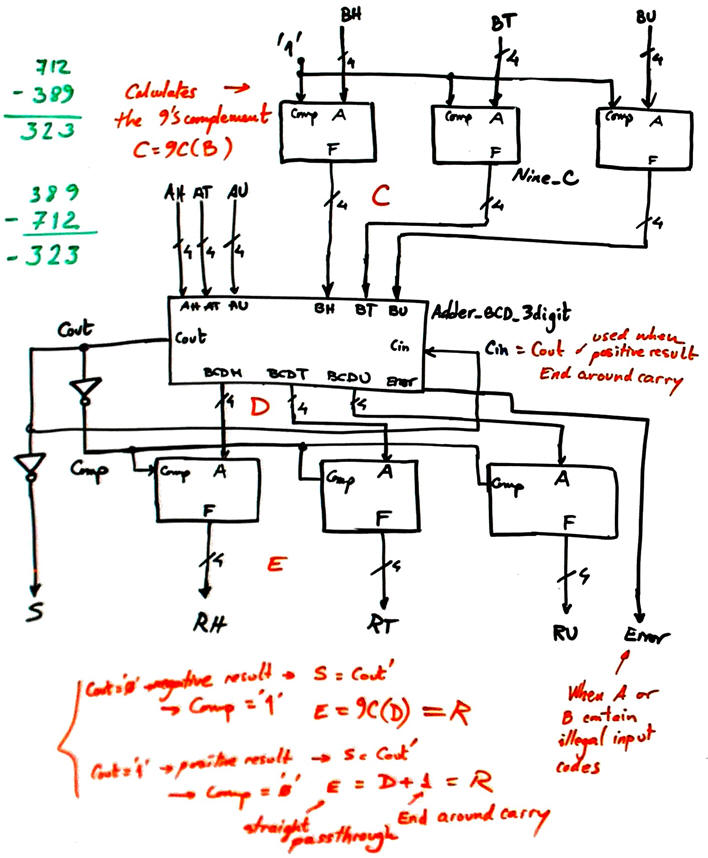 BH BT BU
'1' 4 4 4
712
- 389
323
Calculates →
the 9's complement
C = 9C(B)
Comp A
F
Comp A
F
Comp A
F
Nine_C
4 C 4 4
389
- 712
- 323
AH AT AU
4 4 4
AH AT AU BH BT BU
Adder_BCD_3digit
Cout
Cout
Cin
BCDH BCDT BCDU Error
Cin = Cout ✓ used when
positive result
End around carry
4 D 4 4
Comp
Comp A
F
Comp A
F
Comp A
F
4 E 4 4
S RH RT RU Error
Cout='0' → negative result → S = Cout'
→ Comp = '1' E = 9C(D) = R
Cout='1' → positive result → S = Cout'
→ Comp = '0' E = D+1 = R
straight
passthrough
End around carry
When A or
B contain
illegal input
codes